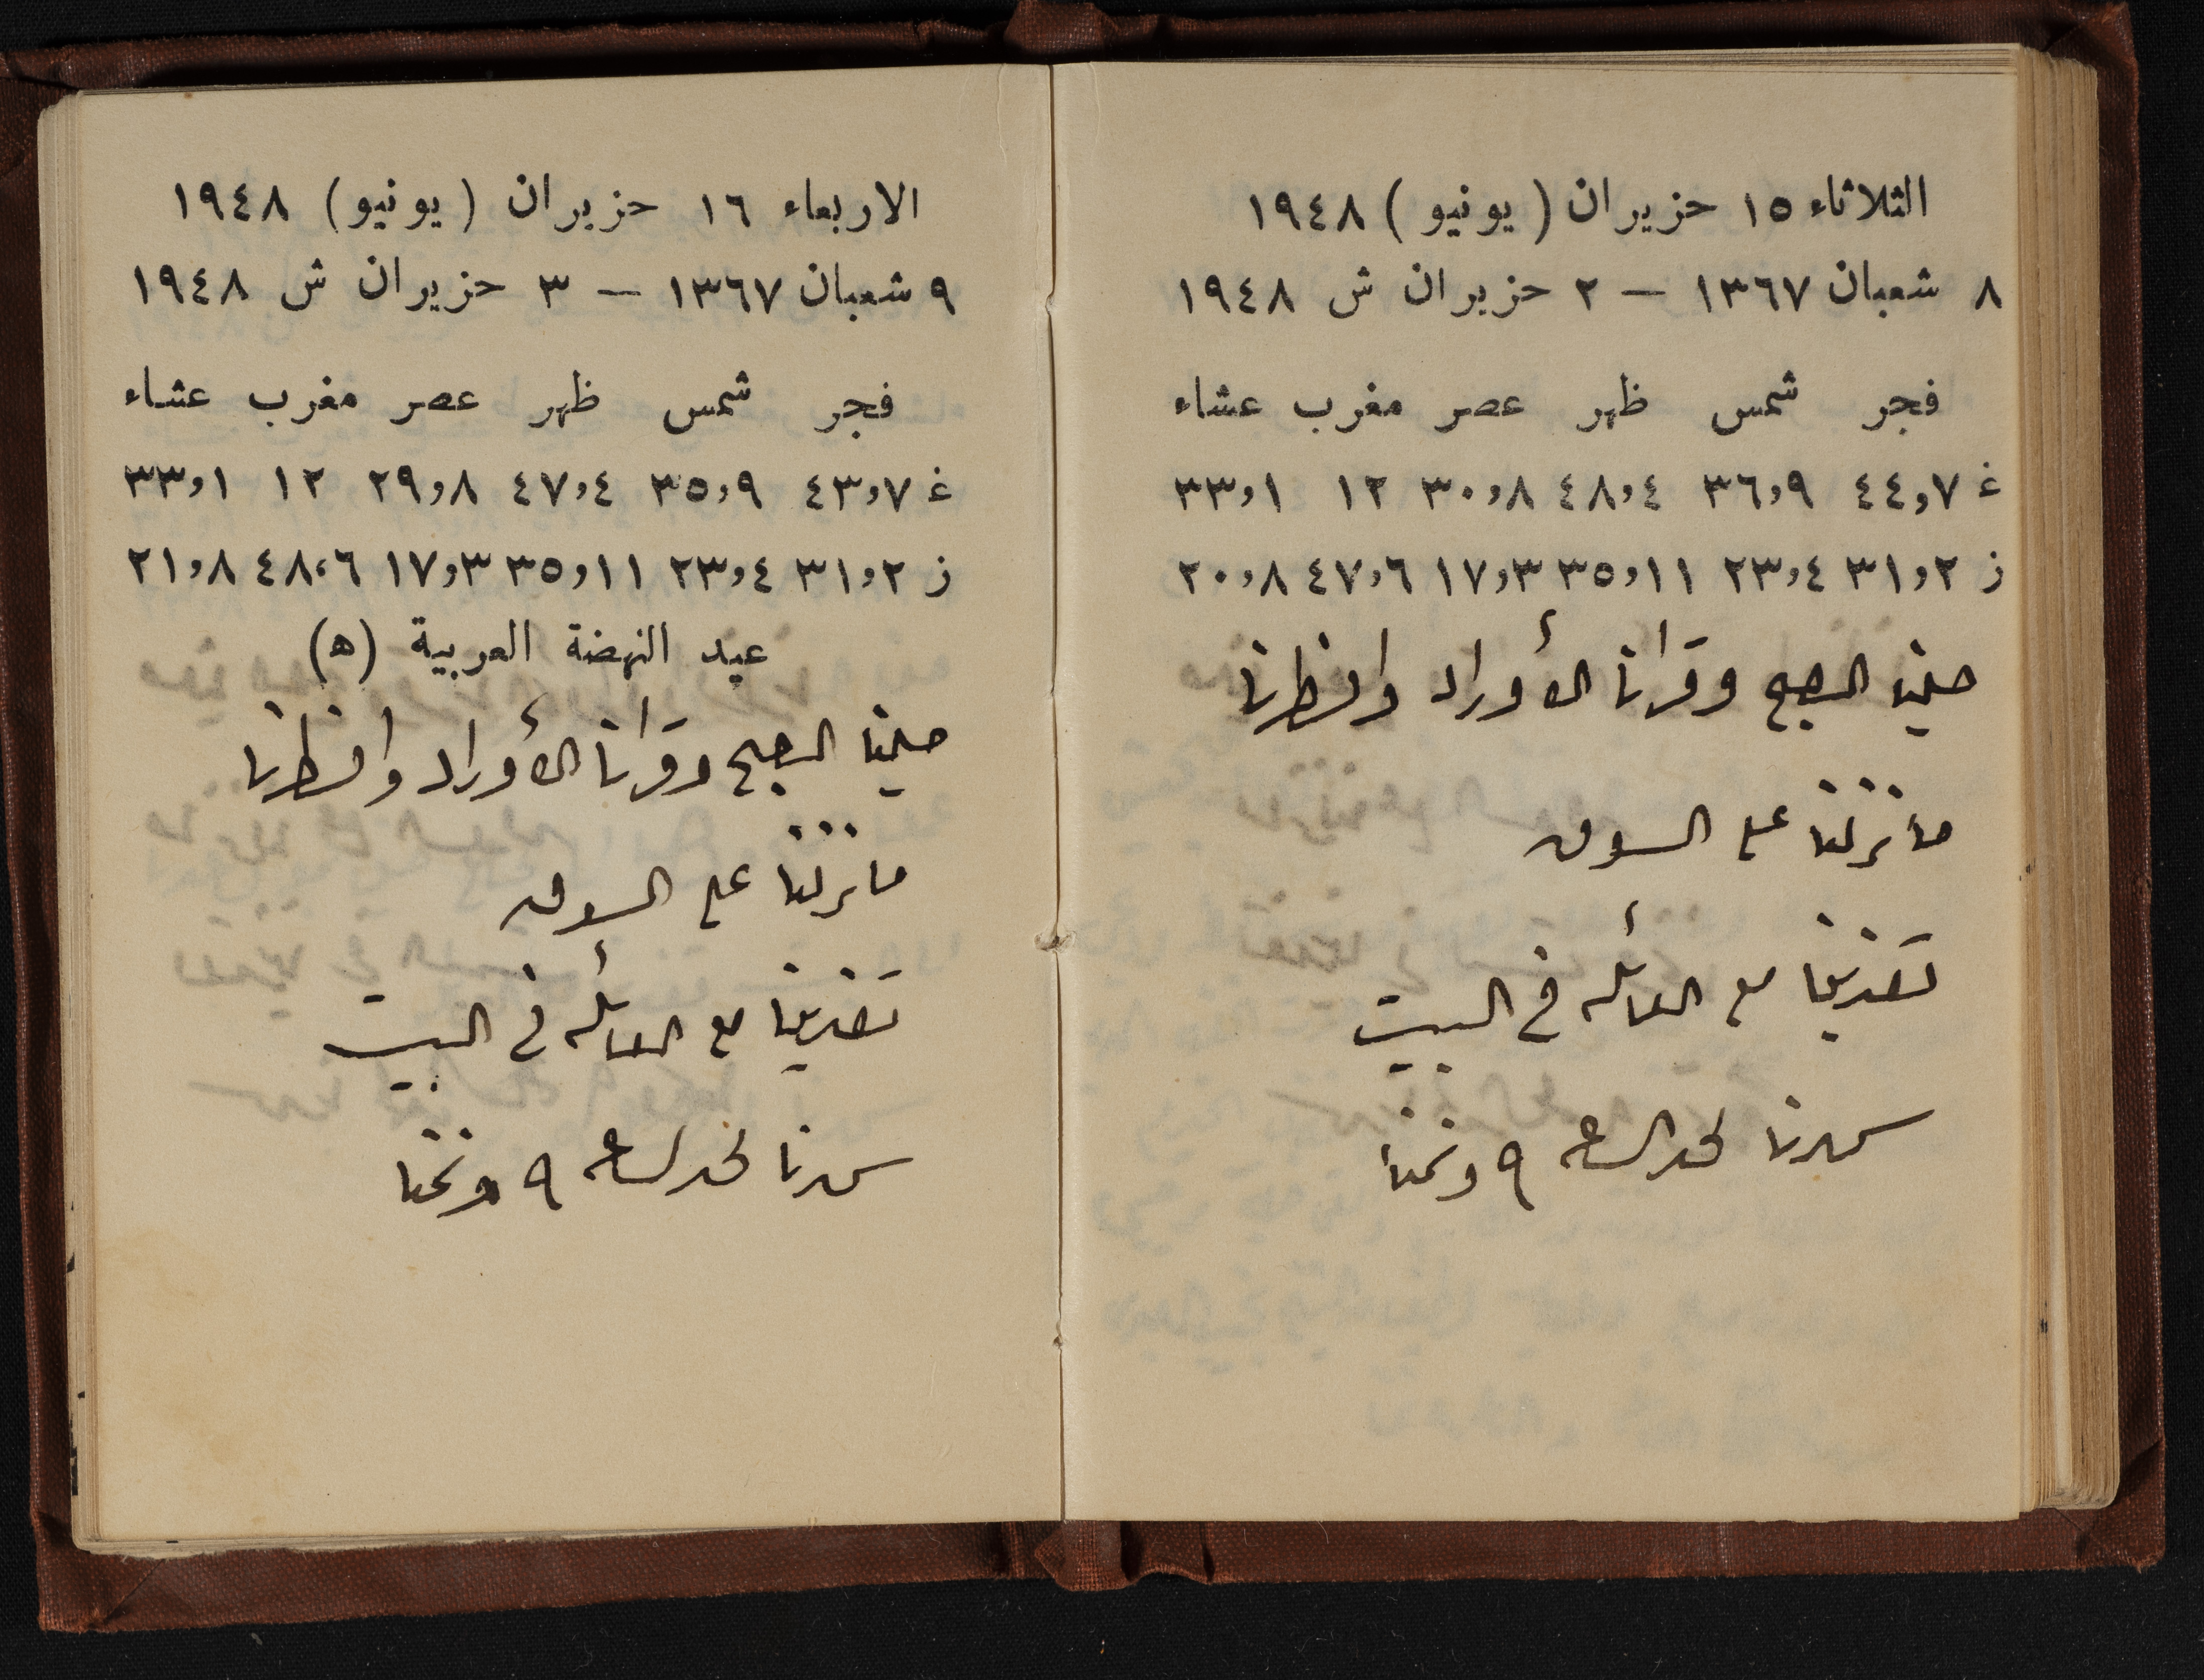 الثلاثاء ١٥ حزيران ( يونيو ) ١٩٤٨
٨ شعبان ١٣٦٧ — ٢ حزيران ش ١٩٤٨
فجر شمس ظهر عصر مغرب عشاء
غ ٤٤,٧ ٣٦,٩ ٤٨,٤ ٣٠,٨ ١٢ ٣٣,١
ز ٣١,٢ ٢٣,٤ ٣٥,١١ ١٧,٣ ٤٧,٦ ٢٠,٨
صلينا الصبح وقرانا الأوراد وافطرنا
ما نزلنا على السوق
تغذينا مع العائله في البيت
سهرنا لحد الساعه ٩ ونمنا
الاربعاء ١٦ حزيران ( يونيو ) ١٩٤٨
٩ شعبان ١٣٦٧ — ٣ حزيران ش ١٩٤٨
فجر شمس ظهر عصر مغرب عشاء
غ ٤٣,٧ ٣٥,٩ ٤٧,٤ ٢٩,٨ ١٢ ٣٣,١
ز ٣١,٢ ٢٣,٤ ٣٥,١١ ١٧,٣ ٤٨,٦ ٢١,٨
عيد النهضة العربية (ه)
صلينا الصبح وقرانا الأوراد وافطرنا
ما نزلنا على السوق
تغذينا مع العائله في البيت
سهرنا لحد الساعه ٩ ونمنا